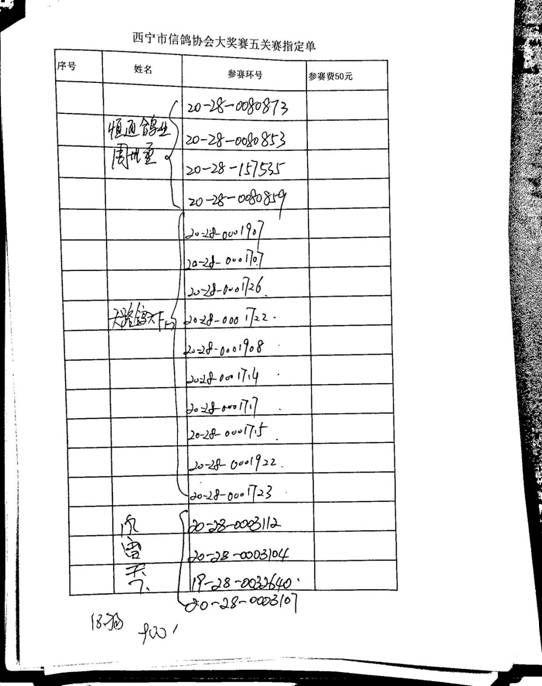 西宁市信鸽协会大奖赛五关赛指定单
序号 姓名 参赛环号 参赛费50元
20-28-0080873
恒通鸽业 20-28-0080853
20-28-157535
20-28-0080859
20-28-0001907
20-28-0001707
20-28-0001726
20-28-0001722
20-28-0001908
20-28-0001714
20-28-0001717
20-28-0001715
20-28-0001922
20-28-0001723
20-28-0003112
20-28-0003104
19-28-0032640
20-28-0003107
18羽
900